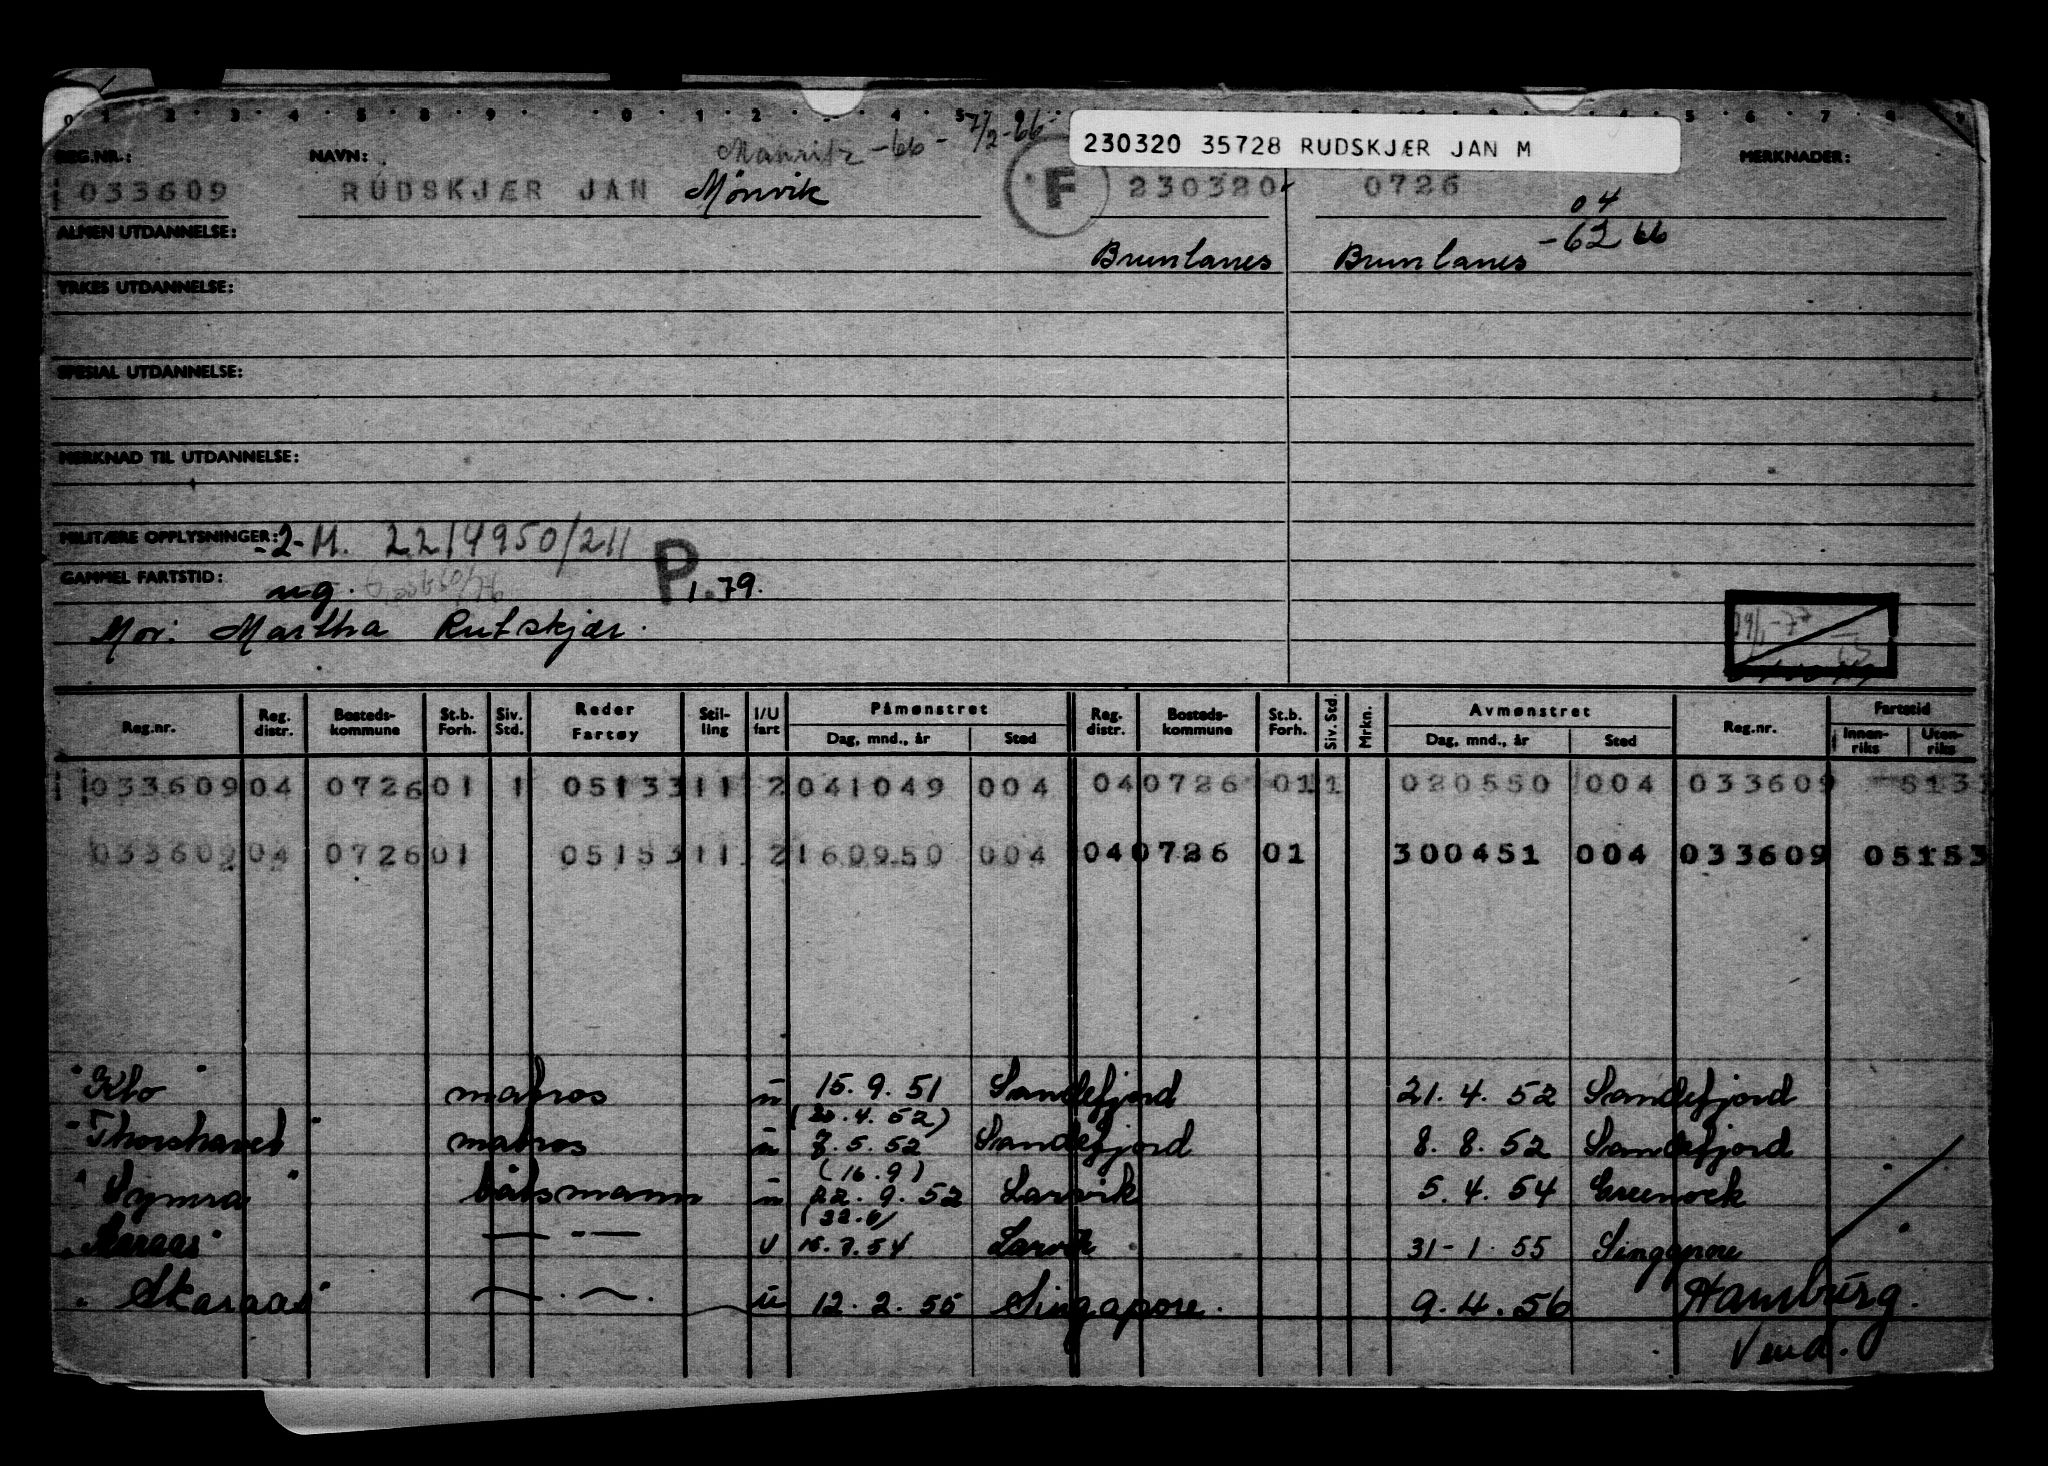 Mauritz -66- 7/2-66
230320 35728 RUDSKJÆR JAN M
REG.NR.: NAVN: MERKNADER:
033609 RUDSKJÆR JAN Mönvik F 230320 0726
04
ALMEN UTDANNELSE: -62 66
Brunlanes Brunlanes
YRKES UTDANNELSE:
SPESIAL UTDANNELSE:
MERKNAD TIL UTDANNELSE:
MILITÆRE OPPLYSNINGER: -2-M. 2214950/211
GAMMEL FARTSTID: ug. P 1.79.
Mor: Martha Rutskjær.
Reg.nr. Reg. distr. Bosteds-kommune St.b. Forh. Siv. Std. Reder Fartøy Stil-ling I/U fart Påmønstret Dag, mnd., år Sted Reg. distr. Bosteds-kommune St.b. Forh. Siv. Std. Mrkn. Avmønstret Dag, mnd., år Sted Reg.nr. Fartstid Innen-riks Uten-riks
033609 04 0726 01 1 05133 11 2 041049 004 04 0726 01 1 020550 004 033609 5133
033609 04 0726 01 05153 11 2 160950 004 04 0726 01 300451 004 033609 05153
"Klo" matros u 15.9.51 Sandefjord 21.4.52 Sandefjord
(30.4.52)
"Thorshavet" matros u 7.5.52 Sandefjord 8.8.52 Sandefjord
(16.9)
"Vymra" båtsmann u 22.9.52 Larvik 5.4.54 Greenock
(22.6)
— " — U 15.7.54 Larvik 31-1.55 Singapore
"Skaraas" — . — . u 12.2.55 Singapore. 9.4.56 Hamburg.
Vend.